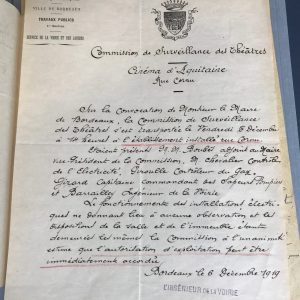 VILLE DE BORDEAUX
TRAVAUX PUBLICS
SERVICE DE LA VOIRIE ET DES
Commission de Surveillance des Théâtres
Cinéma d'Aquitaine
Rue
Sur la Convocation de Monsieur le Maire
de Bordeaux, la Commission de Surveillance
des Théâtres s'est transportée le Vendredi 5 Décembre
à 10 heures à l'établissement installé rue
Etaient présents M.M. Boubés adjoint au Maire
Vice-Président de la Commission, M. Chevalier Contrôle
de l'Electricité, Contrôleur du Gaz,
Girard Capitaine Commandant des Sapeurs Pompiers
et Barrailley Ingénieur de la Voirie.
Le fonctionnement des installations électri-
ques ne donnant lieu à aucune observation et les
dispositions de la salle et de l'immeuble étant
demeurées les mêmes la Commission à l'unanimité
estime que l'autorisation d'exploitation peut être
immédiatement accordée
Bordeaux le 6 Décembre 1919
L'INGÉNIEUR DE LA VOIRIE